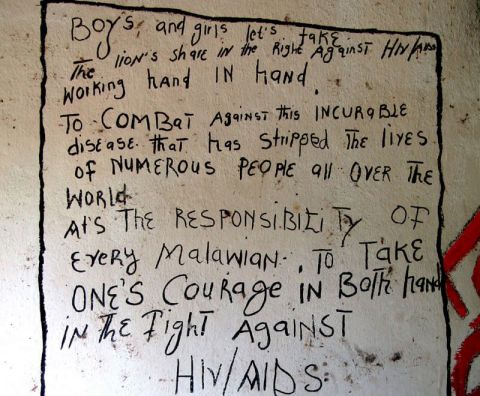 Boy's, and girls let's take
The lion's share in the Right Against HIV/AIDS
Working hand IN hand.
To COMBAT Against this INCURABLE
disease that has stripped The lives
OF NUMEROUS PEOPLE all OVER THE
WORLD
At'S THE RESPONSIBILITY OF
EVERY MALAWIAN. To TAKE
ONE'S COURAGE IN Both hand
IN THE FIGHT AGAINST
HIV/AIDS